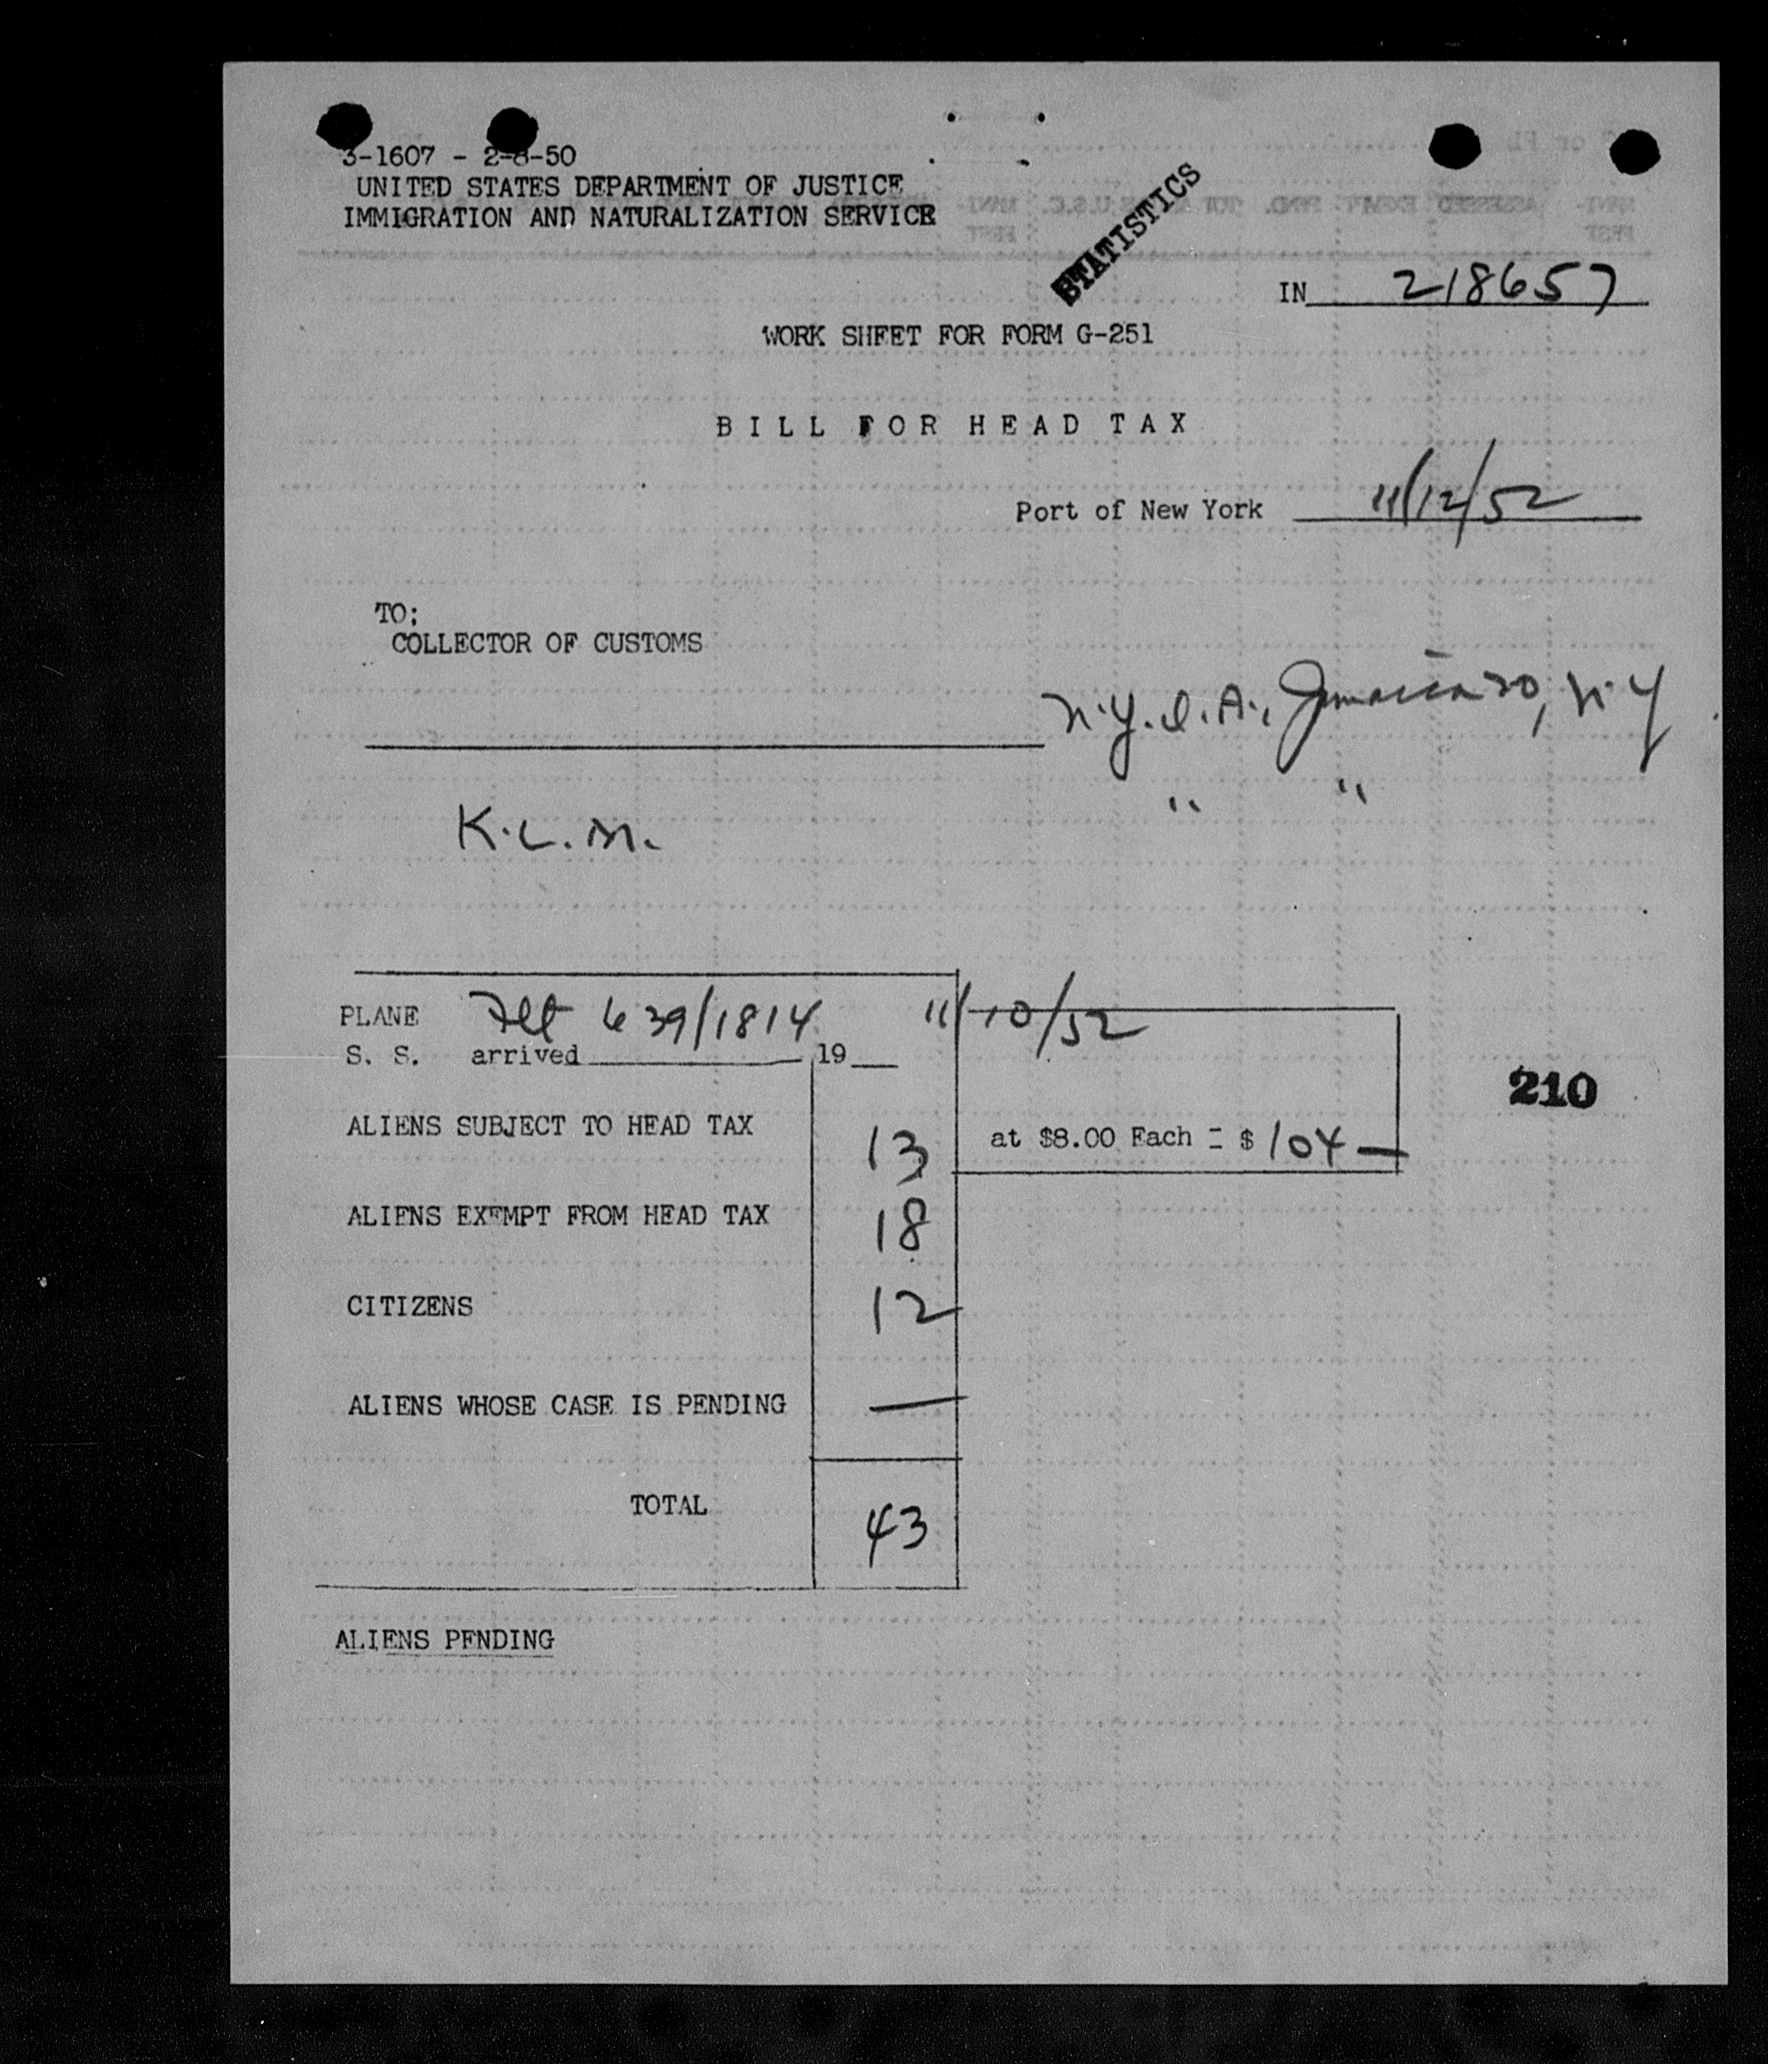 3-1607 - 2-8-50
UNITED STATES DEPARTMENT OF JUSTICE
IMMIGRATION AND NATURALIZATION SERVICE
STATISTICS
IN 218657
WORK SHEET FOR FORM G-251
BILL FOR HEAD TAX
Port of New York 11/12/52
TO:
COLLECTOR OF CUSTOMS
N.Y.I.A., Jamaica 30, N.Y
" "
K.L.M.
PLANE Flt 639/1814 11/10/52
S. S. arrived 19
210
ALIENS SUBJECT TO HEAD TAX 13 at $8.00 Each = $ 104 —
ALIENS EXEMPT FROM HEAD TAX 18
CITIZENS 12
ALIENS WHOSE CASE IS PENDING —
TOTAL 43
ALIENS PENDING